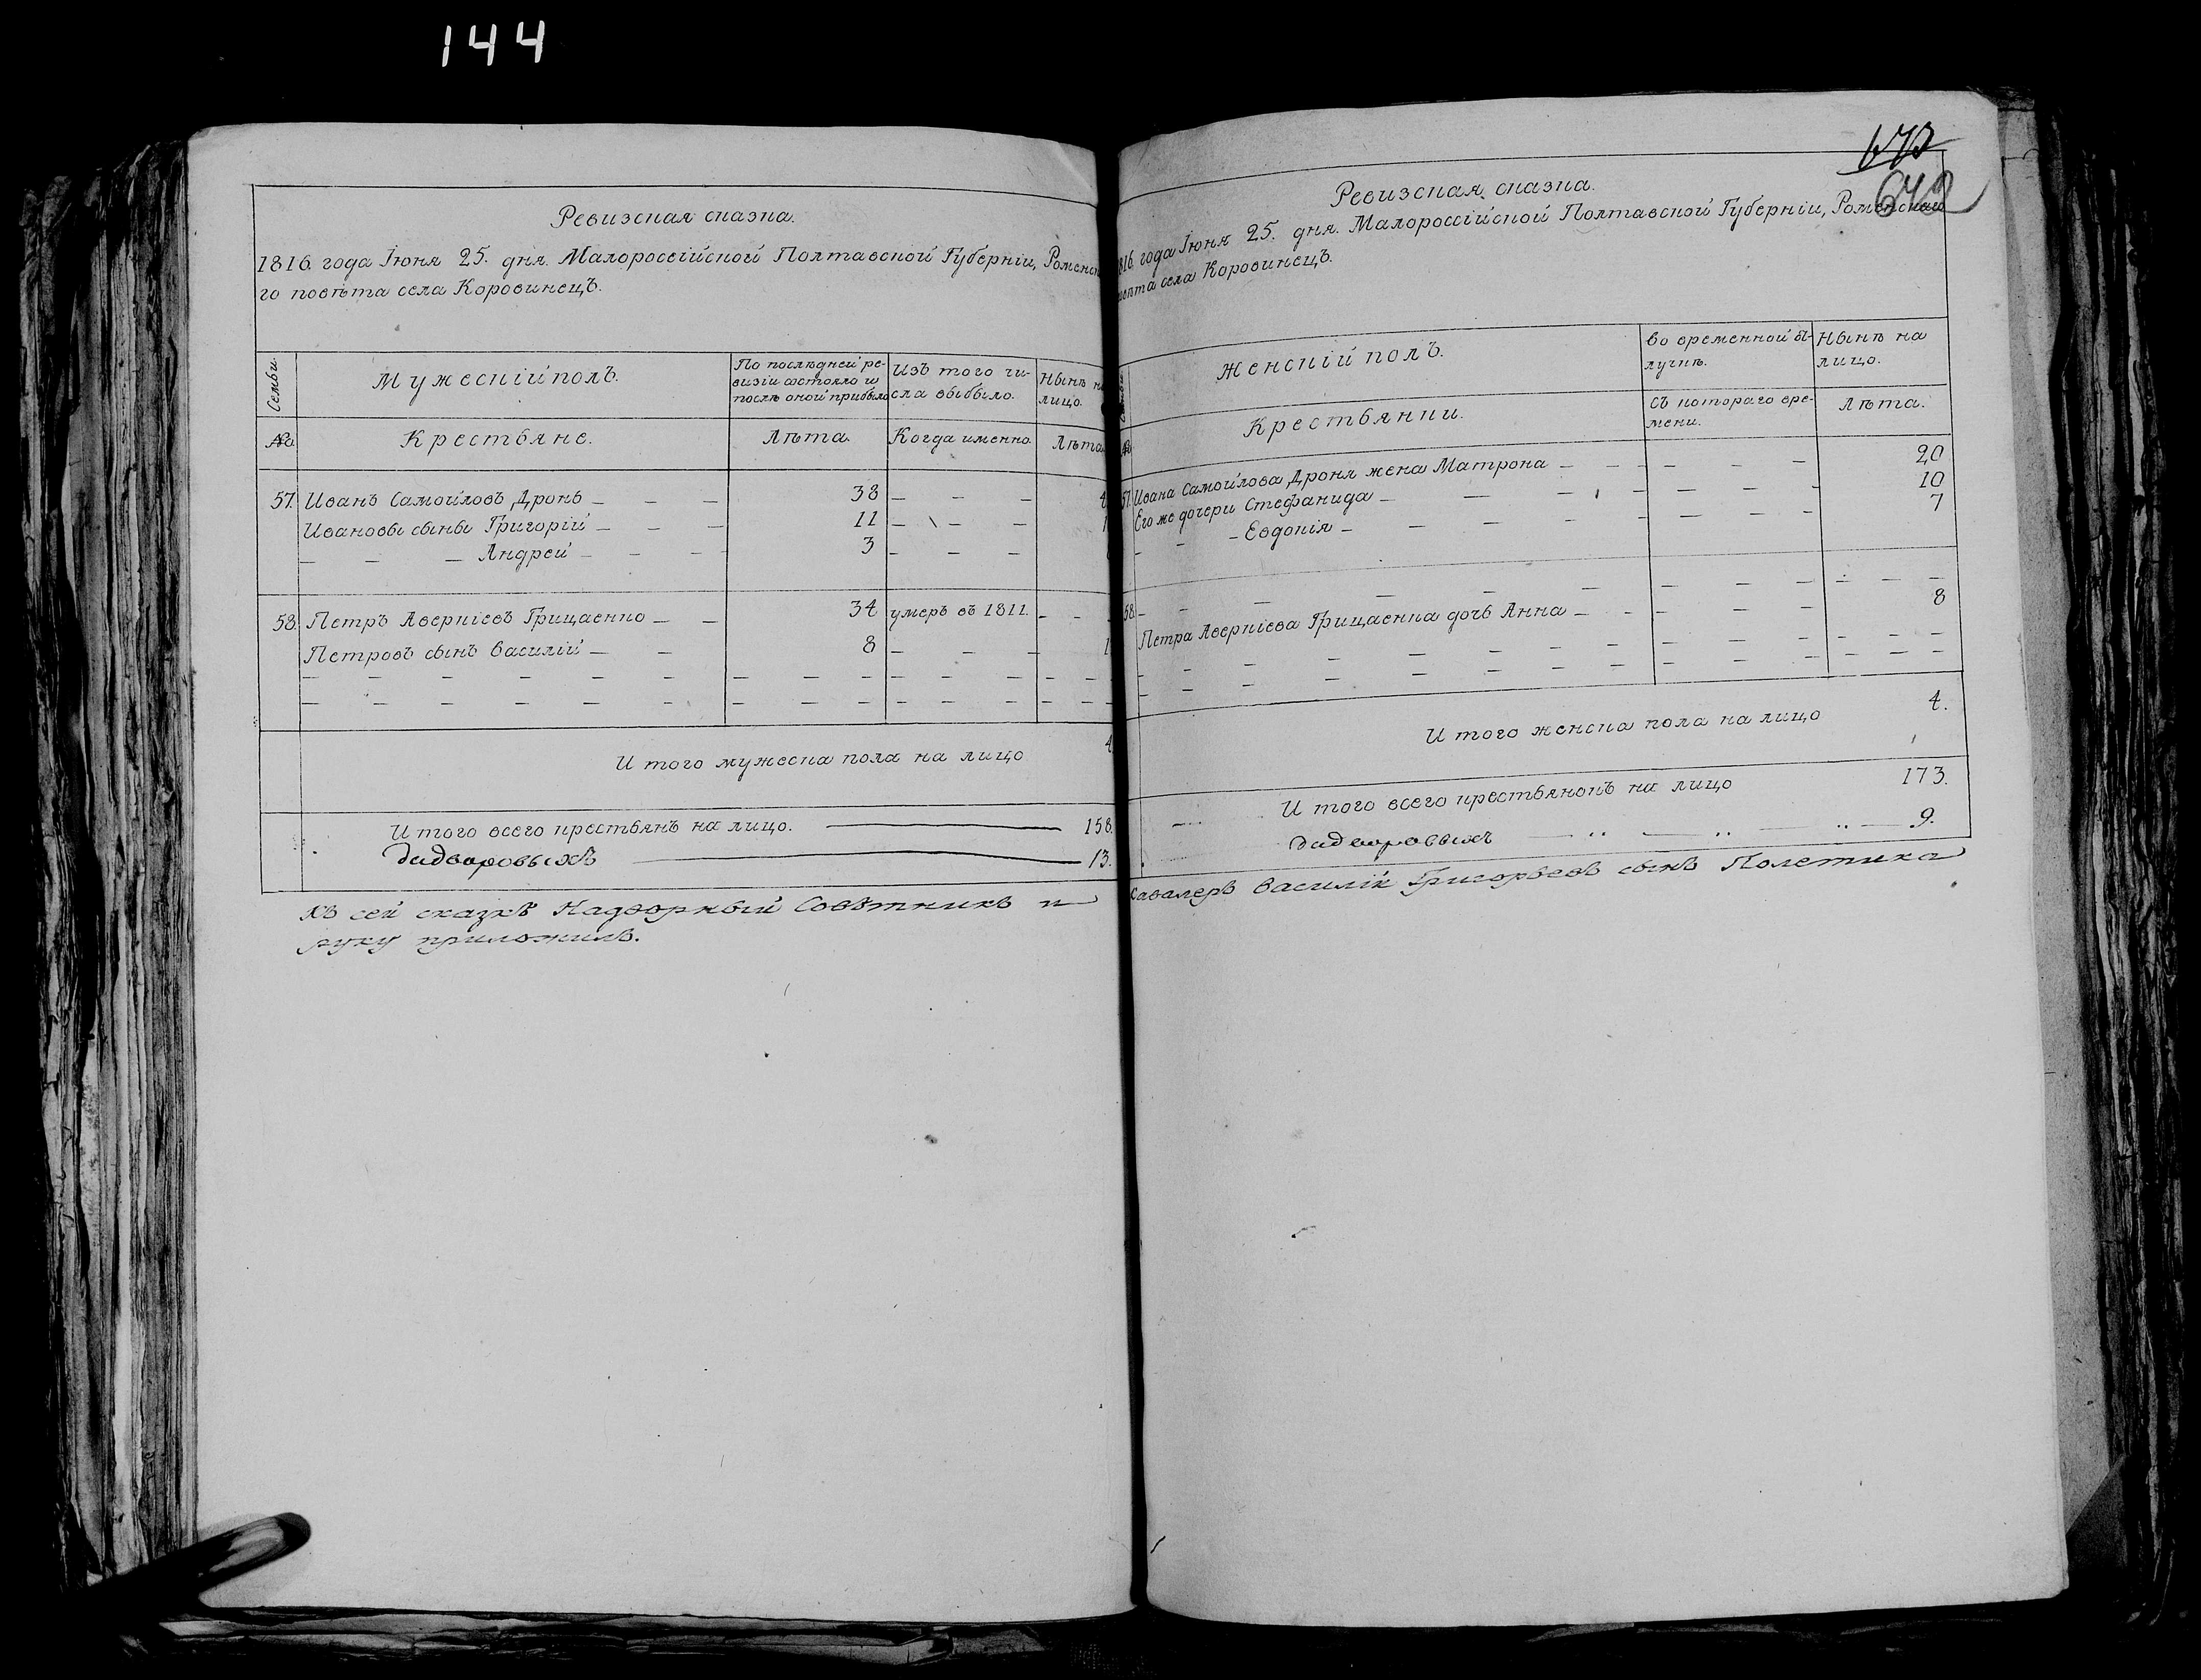 144
Ревизская сказка.
1816. года Iюня 25. дня. Малороссiйской Полтавской Губернiи, Роменска
го повѣта села Коровинецъ.
Семьи.
Мужескiй полъ.
По послѣдней ре-
визiи состояло и
послѣ оной прибыло
Изъ того чи-
сла выбыло.
Нынѣ на
лицо.
№
Крестьяне.
Лѣта.
Когда именно.
Лѣта.
57. Иванъ Самойловъ Дронь — — — 38 — — — 4
Ивановы сыны Григорiй — — — 11 — — — 1
— — — Андрей — — — 3 — — —
58. Петръ Аверкiевъ Грицаенко — — 34 умеръ въ 1811. — —
Петровъ сынъ Василiй — — 8 — — — 1
И того мужеска пола на лицо 4
И того всего крестьянъ на лицо. — 158.
дидворовыхъ — 13.
Къ сей сказкѣ Надворный Совѣтникъ и
руку приложилъ.
673
672
Ревизская сказка.
1816. года Iюня 25. дня. Малороссiйской Полтавской Губернiи, Роменскаго
повѣта села Коровинецъ.
Женскiй полъ.
Во временной от-
лучкѣ.
Нынѣ на
лицо.
№
Крестьянки.
Съ котораго вре-
мени.
Лѣта.
57. Ивана Самойлова Дроня жена Матрона — — — — — 20
Его же дочери Стефанида — — — — — — 10
— — — Евдокiя — — — — — — 7
58. — — — — — — — — — —
Петра Аверкiева Грицаенка дочь Анна — — — — — 8
И того женска пола на лицо 4.
И того всего крестьянокъ на лицо 173.
дидворовыхъ — 9.
Кавалеръ Василiй Григорьевъ сынъ Полетика